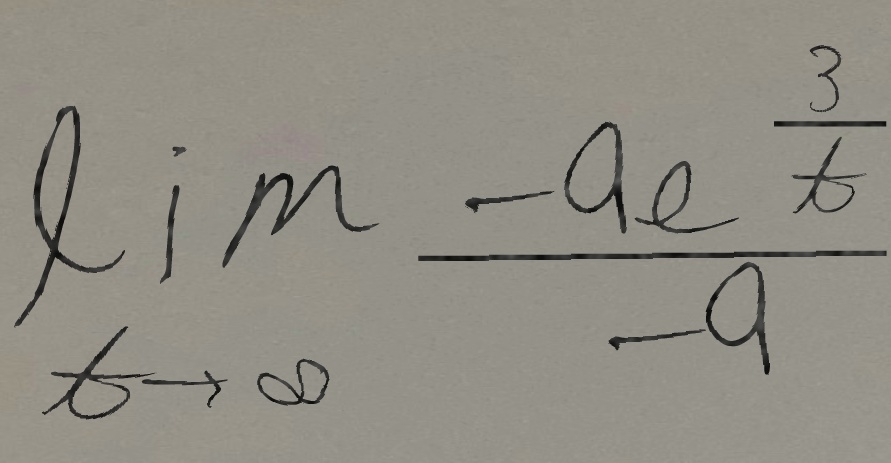 \lim_{t \to \infty} \frac{-9e^{\frac{3}{t}}}{-9}